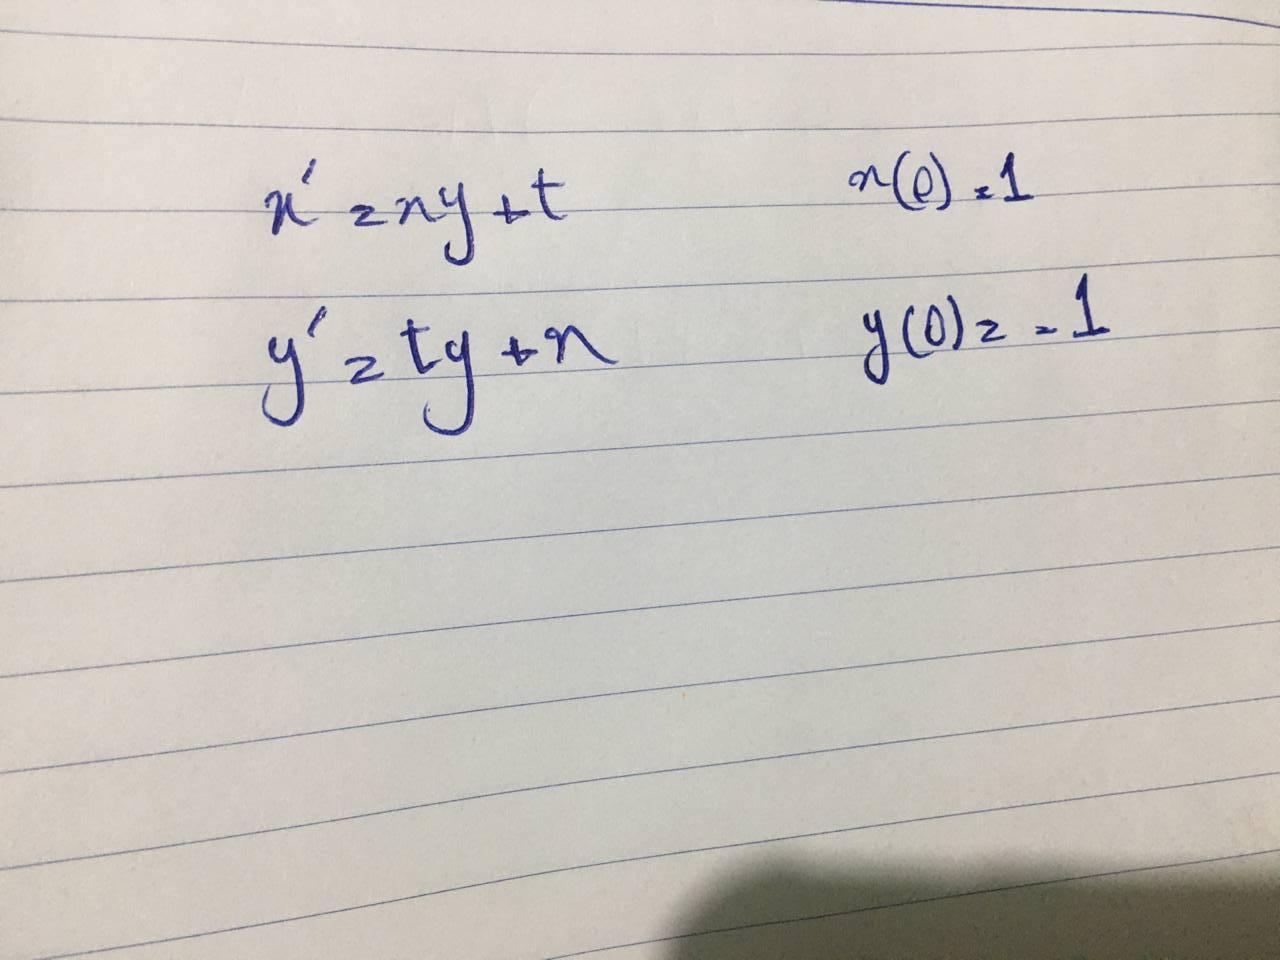 x' = xy + t x(0) = 1
y' = ty + x y(0) = -1